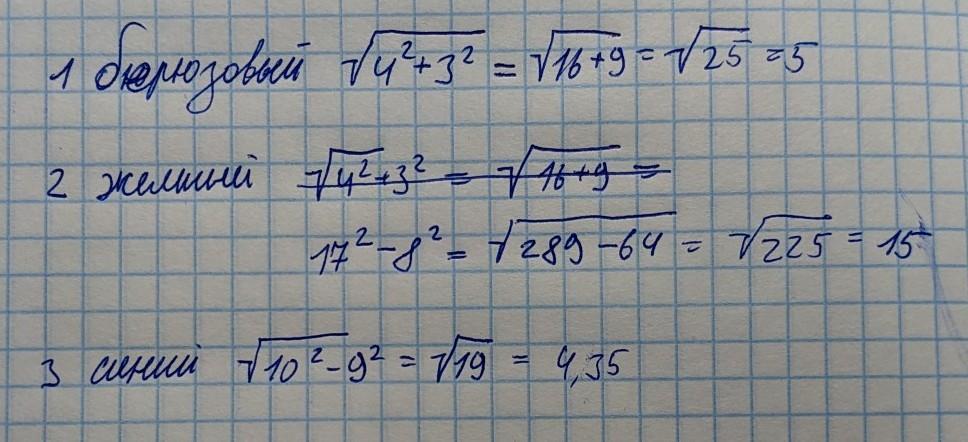 1 бюрюзовый √4²+3² = √16+9 = √25 = 5
2 желтый √4²+3² = √16+9 =
17²-8² = √289-64 = √225 = 15
3 синий √10²-9² = √19 = 4,35